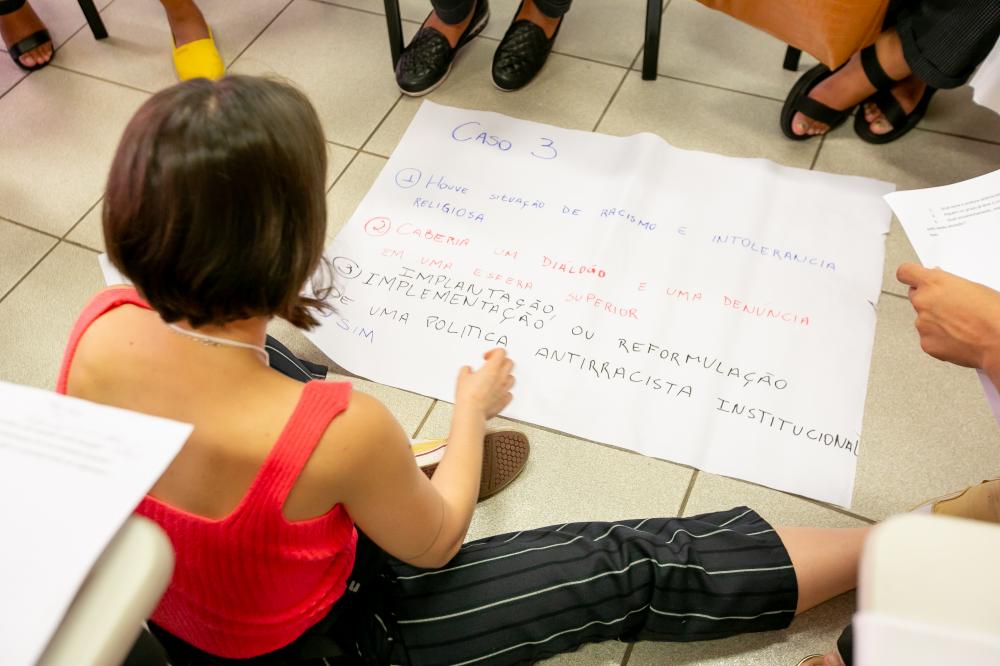 CASO 3
1 HOUVE SITUAÇÃO DE RACISMO E INTOLERANCIA
RELIGIOSA
2 CABERIA UM DIÁLOGO E UMA DENÚNCIA
EM UMA ESFERA SUPERIOR
3 IMPLANTAÇÃO,
IMPLEMENTAÇÃO, OU REFORMULAÇÃO
DE UMA POLITICA ANTIRRACISTA INSTITUCIONAL
SIM